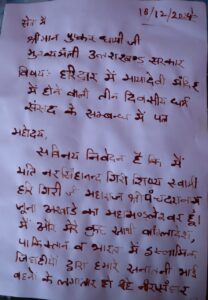 18/12/2024
सेवा में
श्रीमान पुष्कर धामी जी
मुख्यमंत्री उत्तराखण्ड सरकार
विषय: हरिद्वार में मायादेवी मंदिर
में होने वाली तीन दिवसीय धर्म
संसद के सम्बन्ध में पत्र
महोदय,
सविनय निवेदन है कि मैं
यति नरसिंहानन्द गिरी शिष्य स्वामी
हरि गिरी जी महाराज श्री पंचदशनाम
जूना अखाड़े का महामण्डलेश्वर हूँ।
मैं और मेरे कुछ साथी बांग्लादेश,
पाकिस्तान व भारत में इस्लामिक
जिहादियों द्वारा हमारे सनातनी भाई
बहनों के लगातार हो रहे नरसंहार